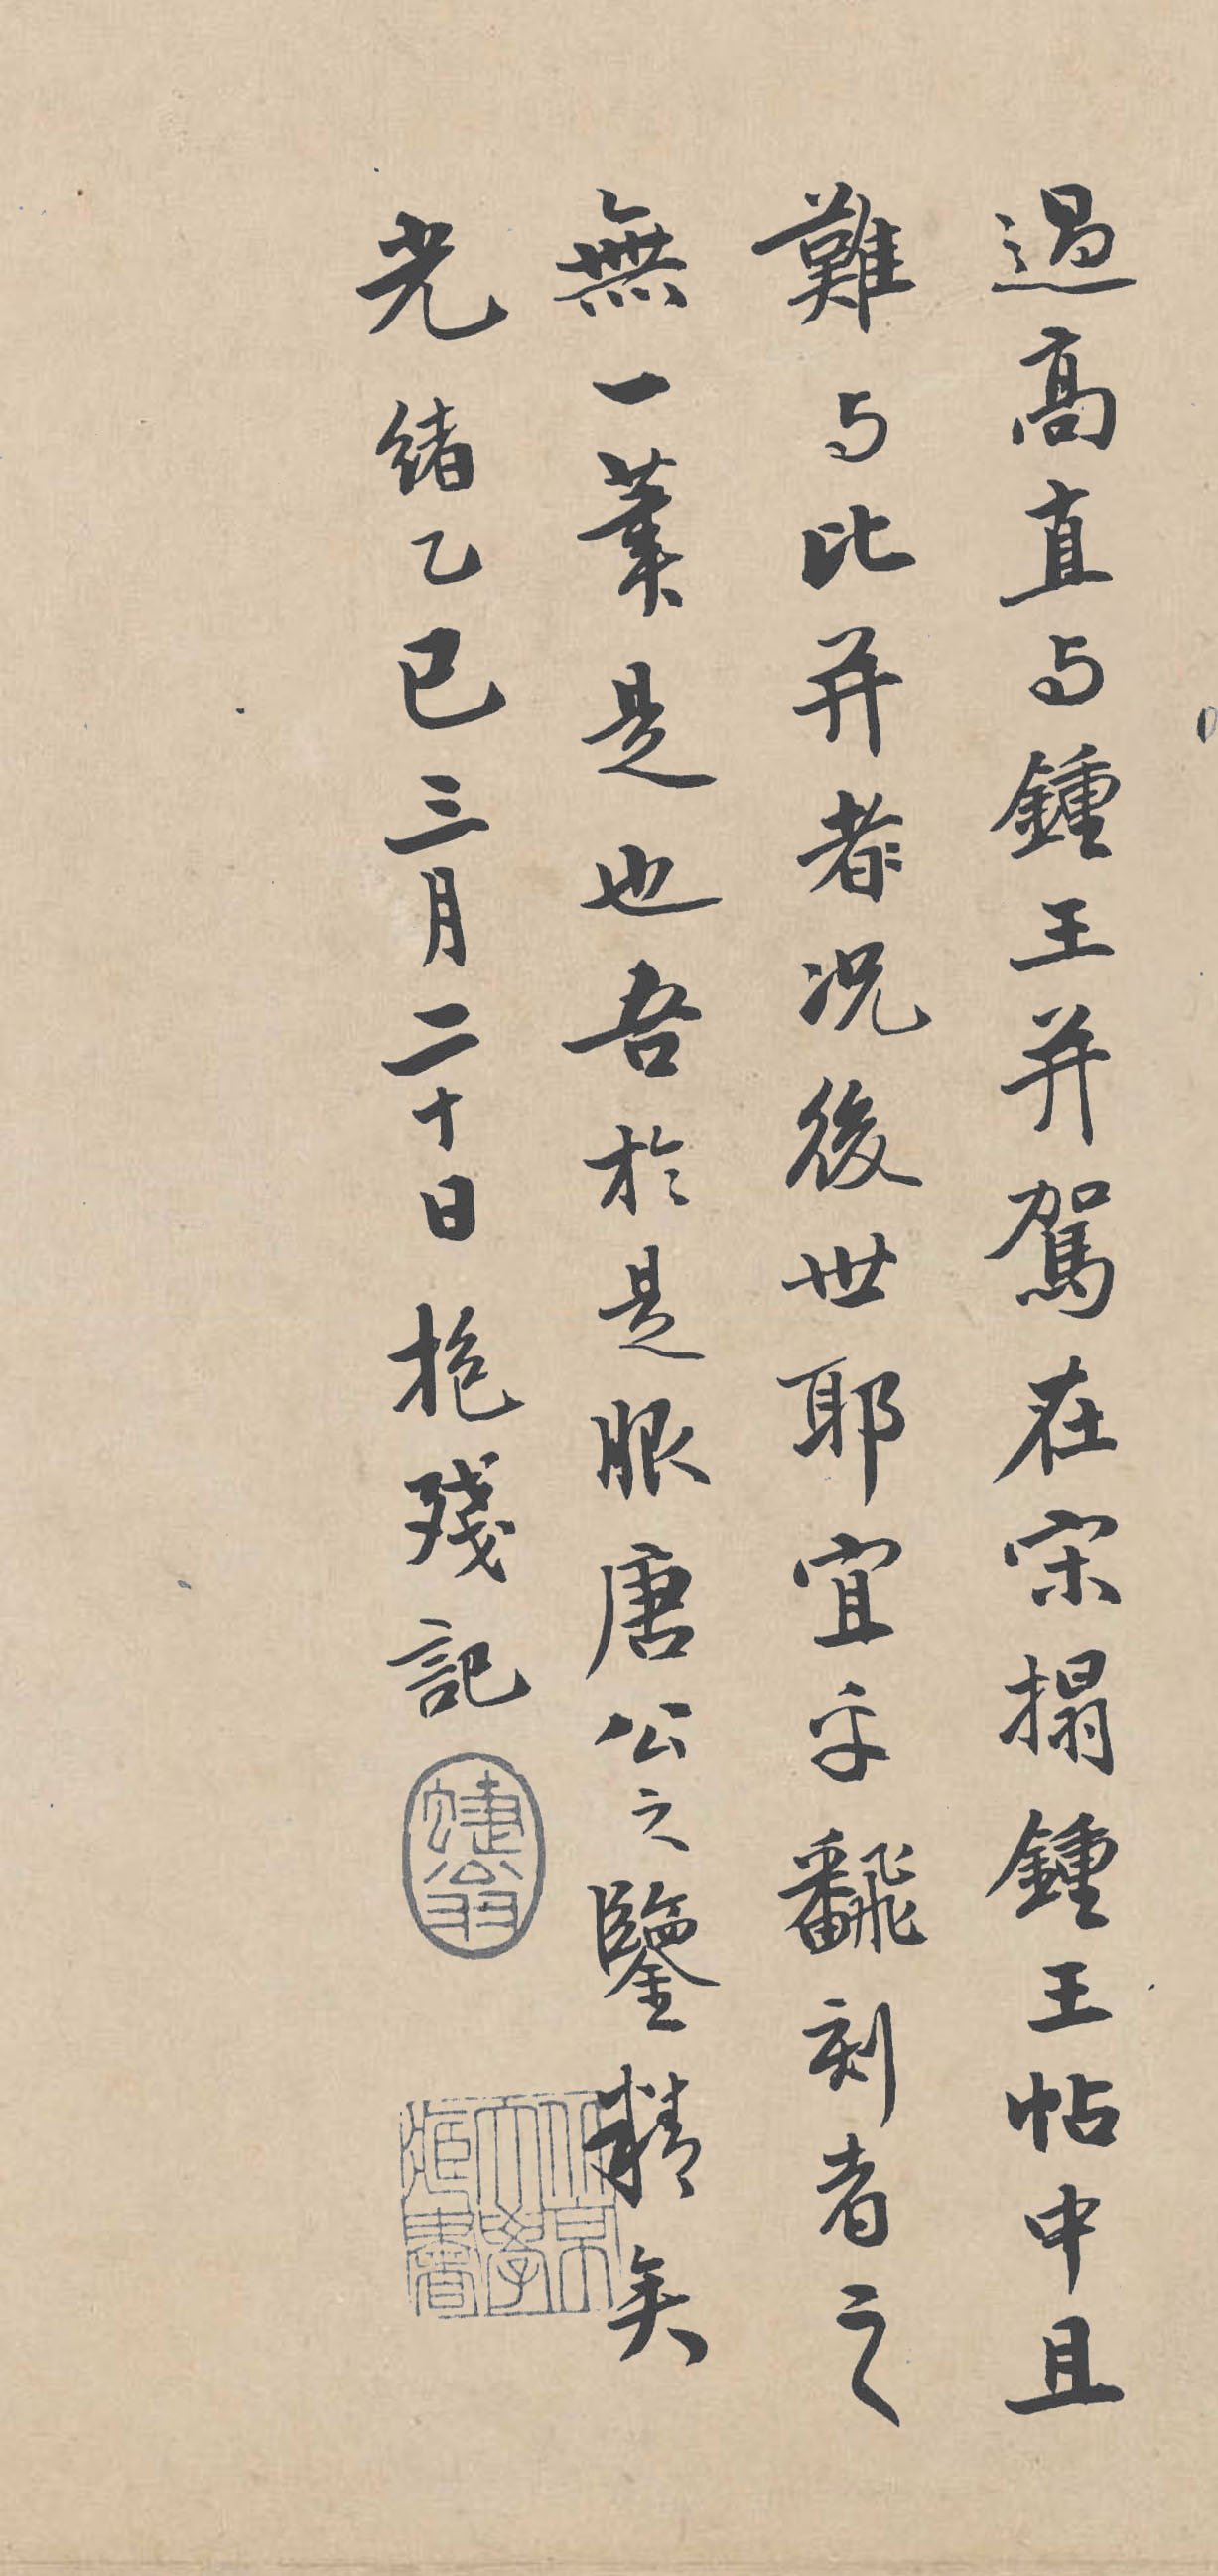 過高直与鍾王并駕在宋搨鍾王帖中且
難与比并者况後世耶宜乎飜刻者之
無一筆是也吾於是服唐公之鑒精矣
光緒乙巳三月二十日抱殘記
蜨翁
北京大學藏書